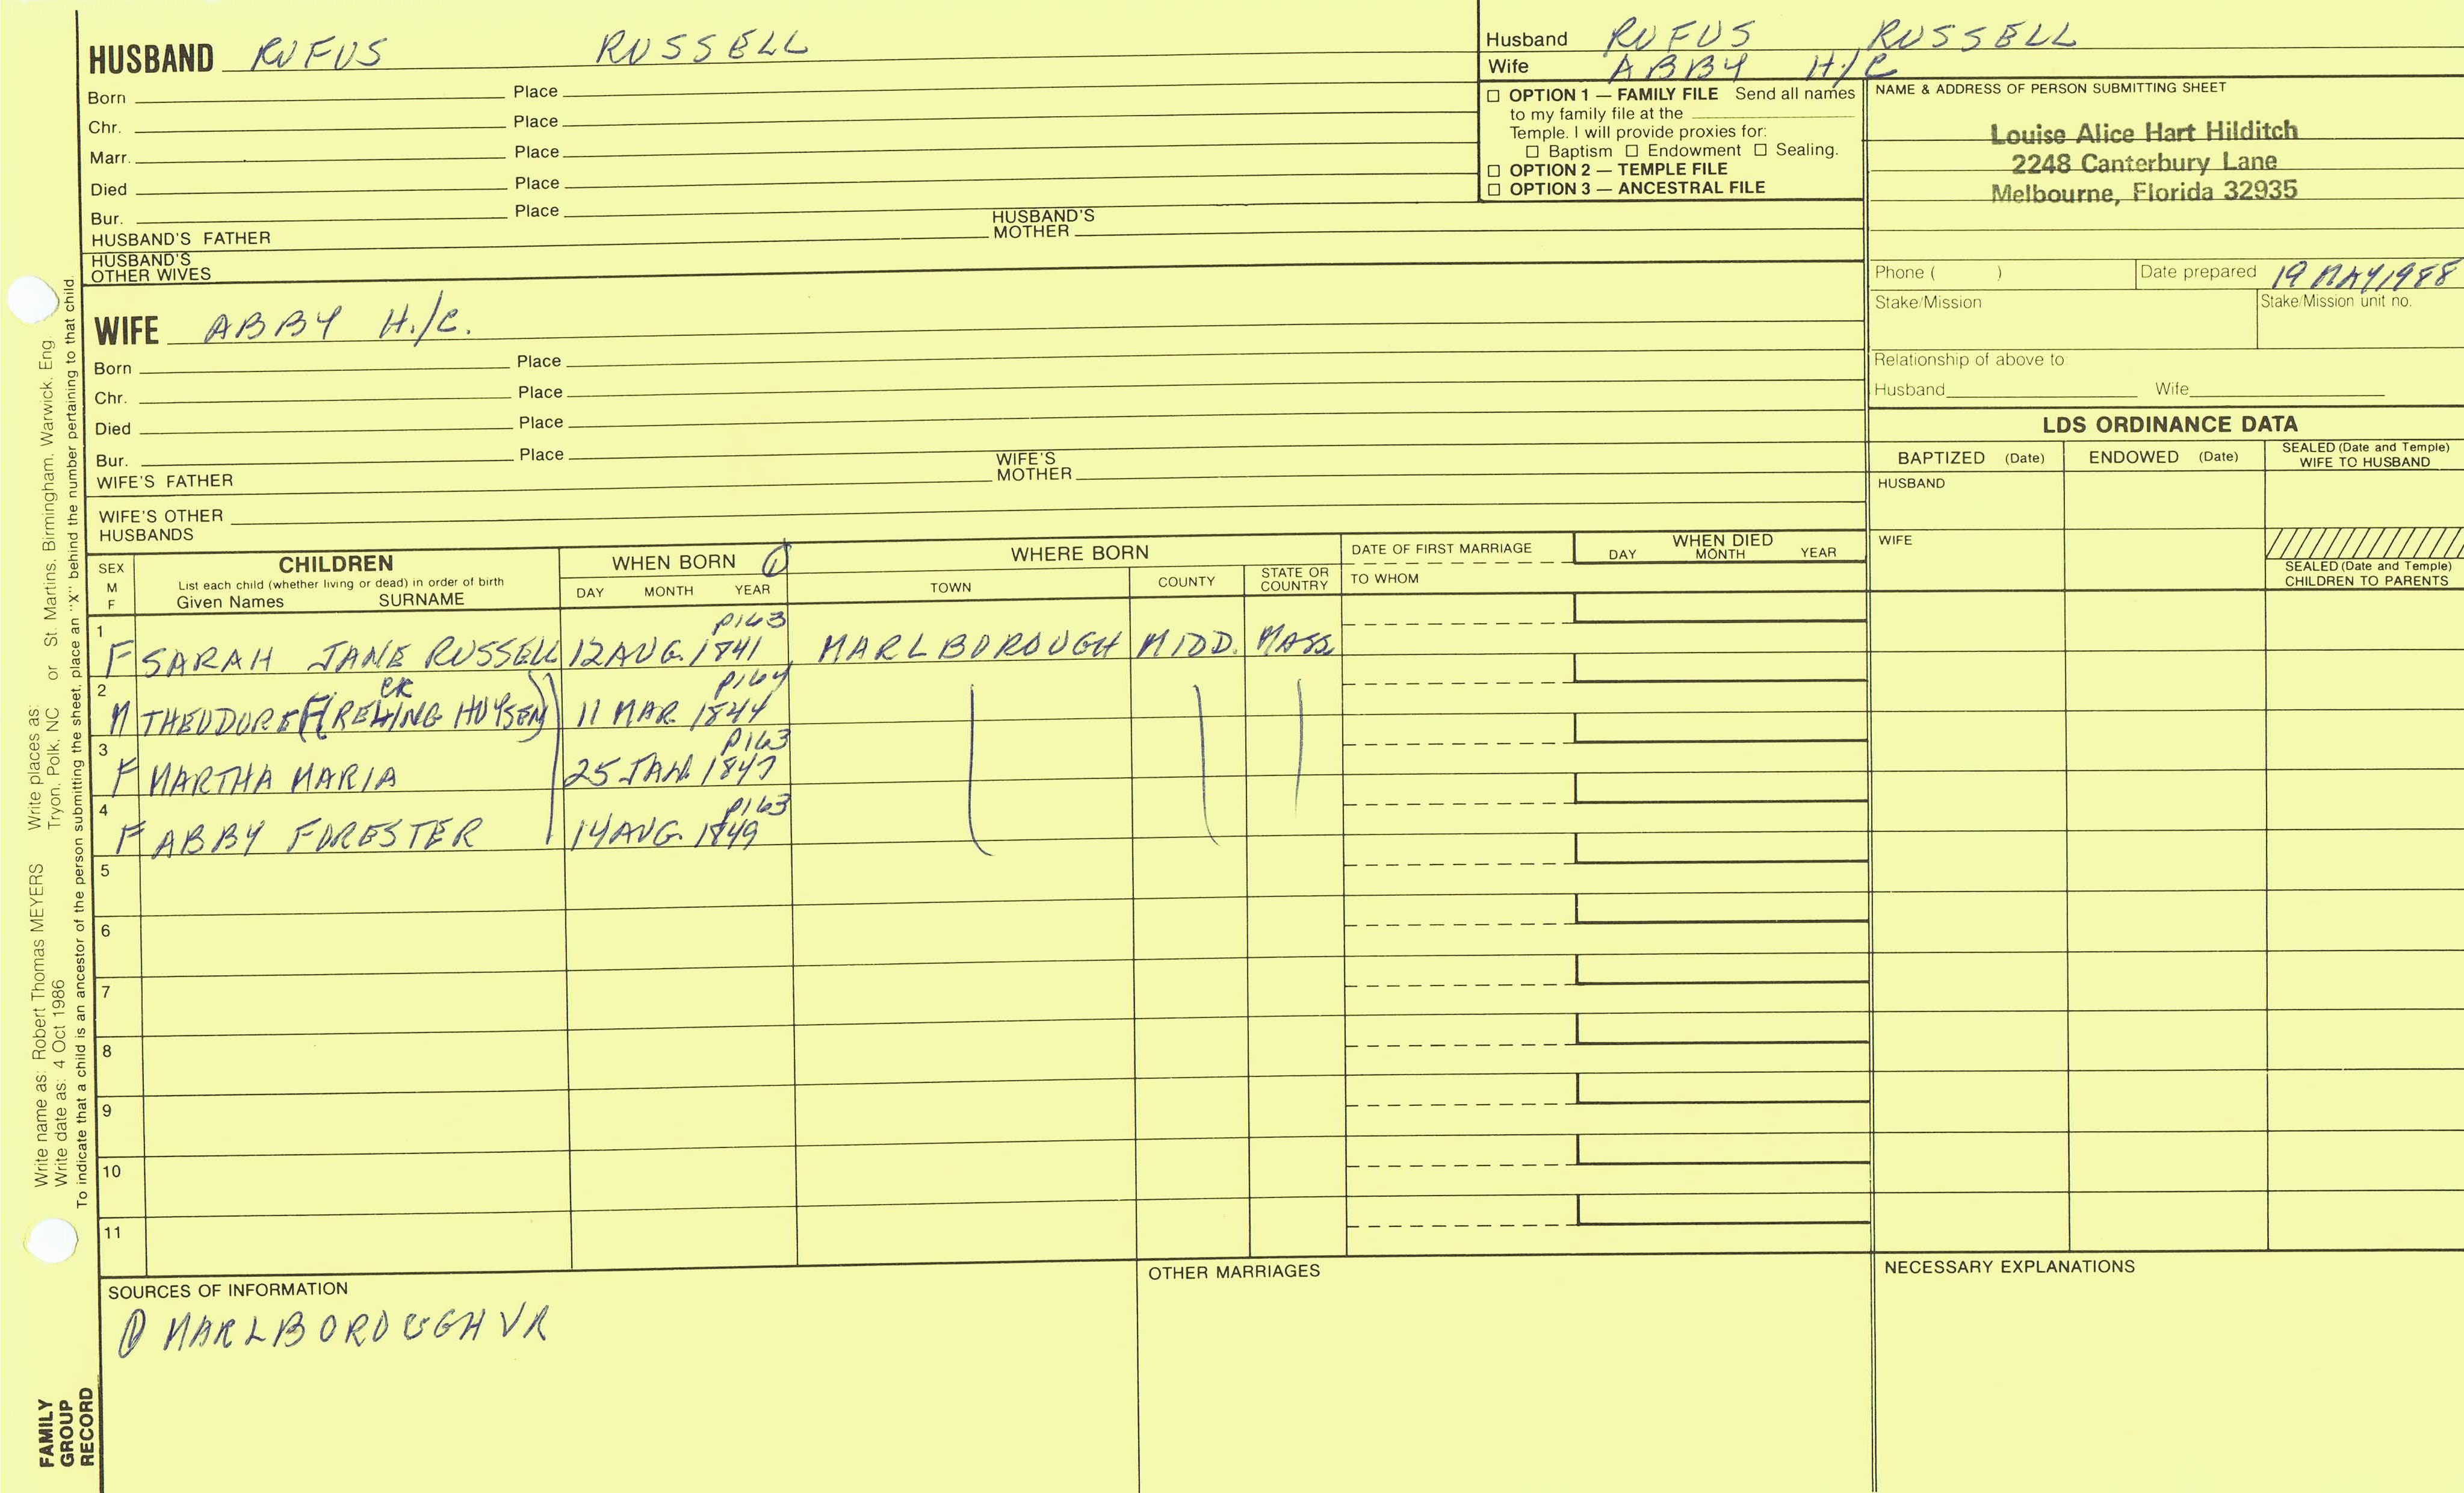 HUSBAND RUFUS RUSSELL
Born Place
Chr. Place
Marr. Place
Died Place
Bur. Place
HUSBAND'S FATHER HUSBAND'S MOTHER
HUSBAND'S OTHER WIVES
Husband RUFUS RUSSELL
Wife ABBY H./C.
☐ OPTION 1 — FAMILY FILE Send all names
to my family file at the
Temple. I will provide proxies for:
☐ Baptism ☐ Endowment ☐ Sealing.
☐ OPTION 2 — TEMPLE FILE
☐ OPTION 3 — ANCESTRAL FILE
NAME & ADDRESS OF PERSON SUBMITTING SHEET
Louise Alice Hart Hilditch
2248 Canterbury Lane
Melbourne, Florida 32935
Phone ( ) Date prepared 19 MAY 1988
Stake/Mission Stake/Mission unit no.
Relationship of above to:
Husband Wife
WIFE ABBY H./C.
Born Place
Chr. Place
Died Place
Bur. Place
WIFE'S FATHER WIFE'S MOTHER
WIFE'S OTHER HUSBANDS
LDS ORDINANCE DATA
BAPTIZED (Date) ENDOWED (Date) SEALED (Date and Temple) WIFE TO HUSBAND
HUSBAND
WIFE
SEALED (Date and Temple) CHILDREN TO PARENTS
SEX M F
CHILDREN
List each child (whether living or dead) in order of birth
Given Names SURNAME
WHEN BORN ①
DAY MONTH YEAR
WHERE BORN
TOWN COUNTY STATE OR COUNTRY
DATE OF FIRST MARRIAGE
TO WHOM
WHEN DIED
DAY MONTH YEAR
1 F SARAH JANE RUSSELL 12 AUG. 1841 P163 MARLBOROUGH MIDD. MASS.
2 M THEODORE 11 MAR 1844 P164
3 F MARTHA MARIA 25 JAN. 1847 P163
4 F ABBY FORESTER 14 AUG. 1849 P163
5
6
7
8
9
10
11
SOURCES OF INFORMATION
① MARLBOROUGH VR
OTHER MARRIAGES
NECESSARY EXPLANATIONS
Write name as: Robert Thomas MEYERS Write places as:
Write date as: 4 Oct 1986 Tryon, Polk, NC or St. Martins, Birmingham, Warwick, Eng
To indicate that a child is an ancestor of the person submitting the sheet, place an "X" behind the number pertaining to that child.
FAMILY
GROUP
RECORD